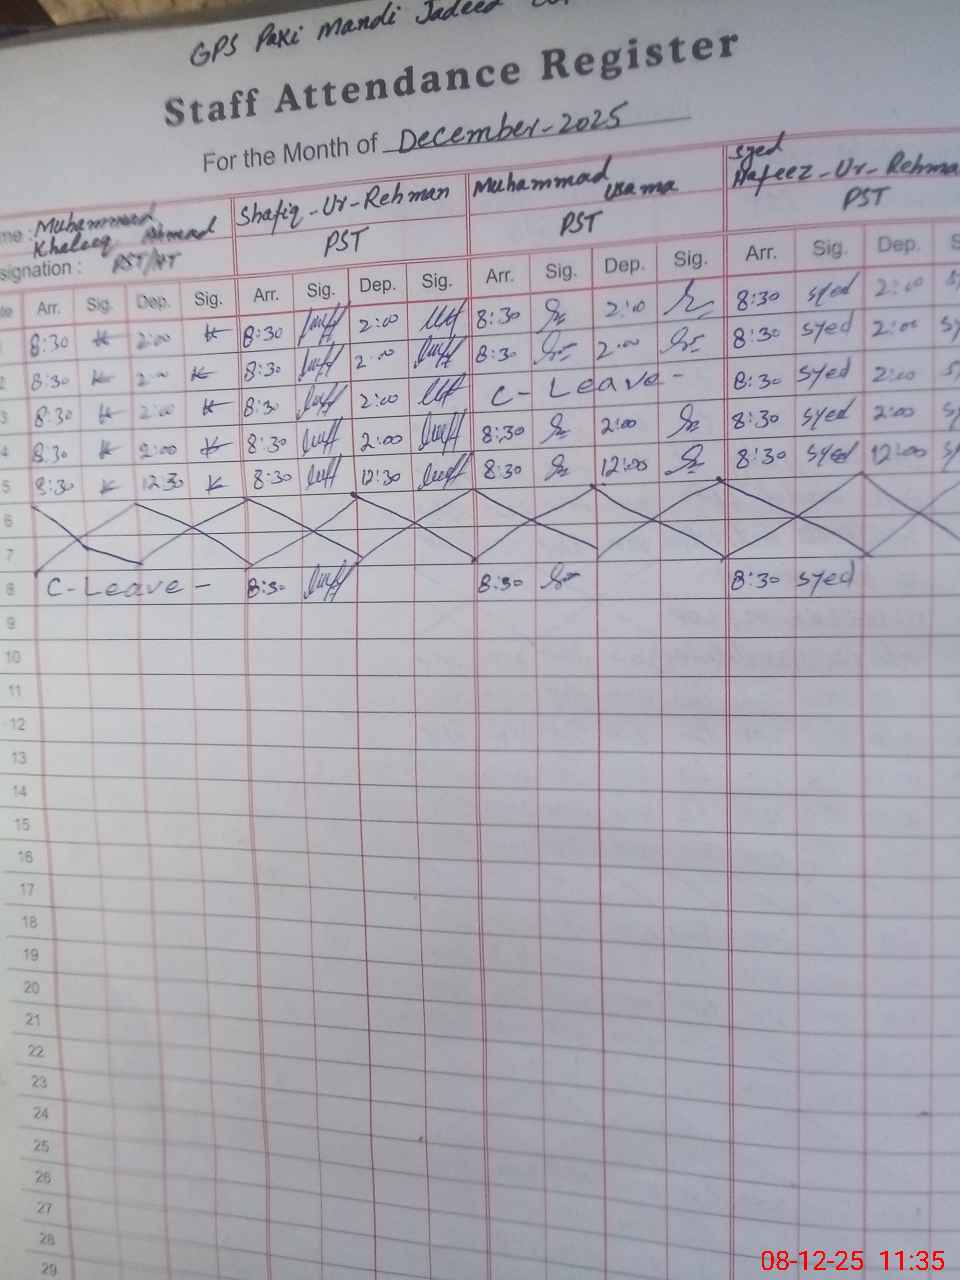 GPS Paki Mandi Jadeed
Staff Attendance Register
For the Month of December-2025
me : Muhammad Khaleeq Ahmad Shafiq-Ur-Rehman Muhammad Usama Syed Hafeez-Ur-Rehma
signation : PST/HT PST PST PST
te Arr. Sig. Dep. Sig. Arr. Sig. Dep. Sig. Arr. Sig. Dep. Sig. Arr. Sig. Dep. S
8:30 2:00 8:30 2:00 8:30 2:00 8:30 syed 2:00 sy
8:30 2:00 8:30 2:00 8:30 2:00 8:30 syed 2:00 sy
3 8:30 2:00 8:30 2:00 C-Leave- 8:30 syed 2:00 sy
4 8:30 2:00 8:30 2:00 8:30 2:00 8:30 syed 2:00 sy
5 8:30 12:30 8:30 12:30 8:30 12:00 8:30 syed 12:00 sy
6
7
8 C-Leave- 8:30 8:30 8:30 syed
9
10
11
12
13
14
15
16
17
18
19
20
21
22
23
24
25
26
27
28
29
08-12-25 11:35